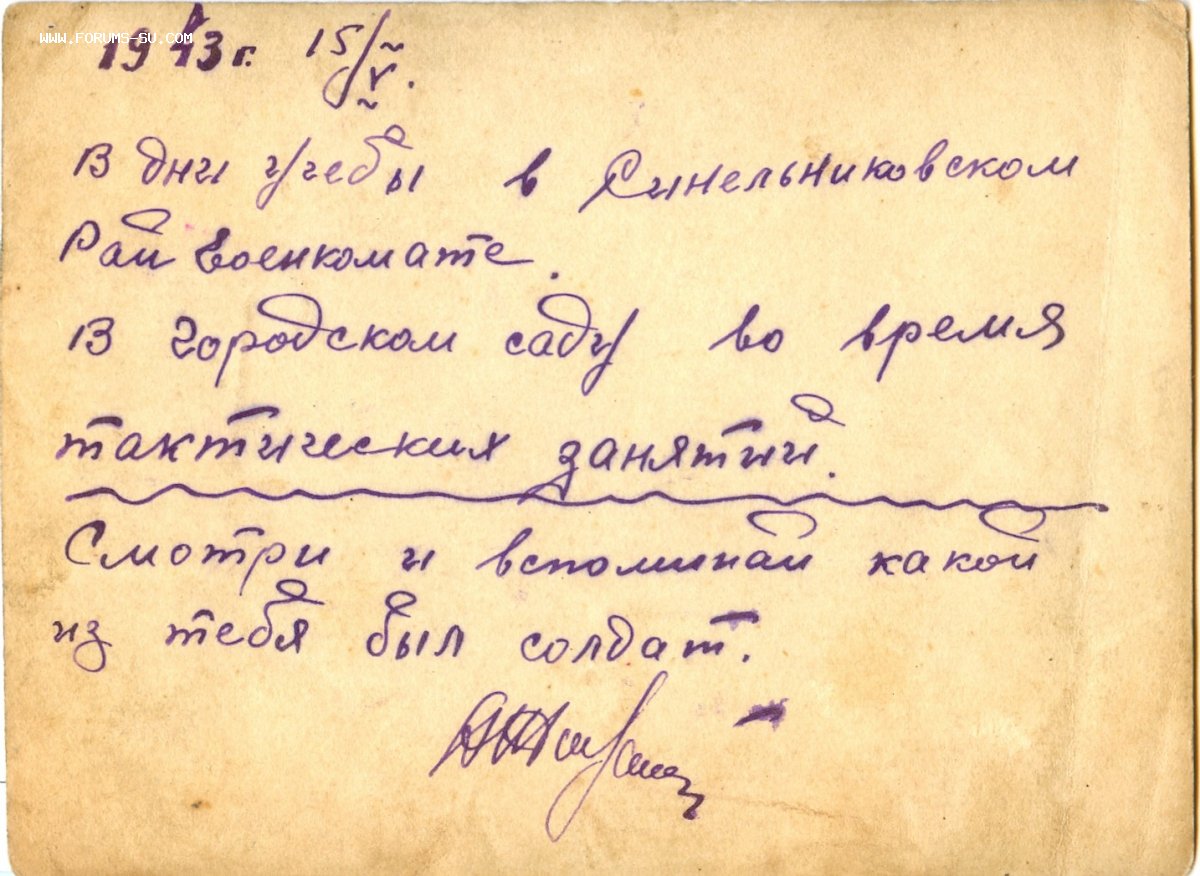 WWW.FORUMS-SU.COM
1943 г. 15/V.
В дни учебы в Синельниковском
Рай Военкомате.
В городском саду во время
тактических занятий.
Смотри и вспоминай какой
из тебя был солдат.